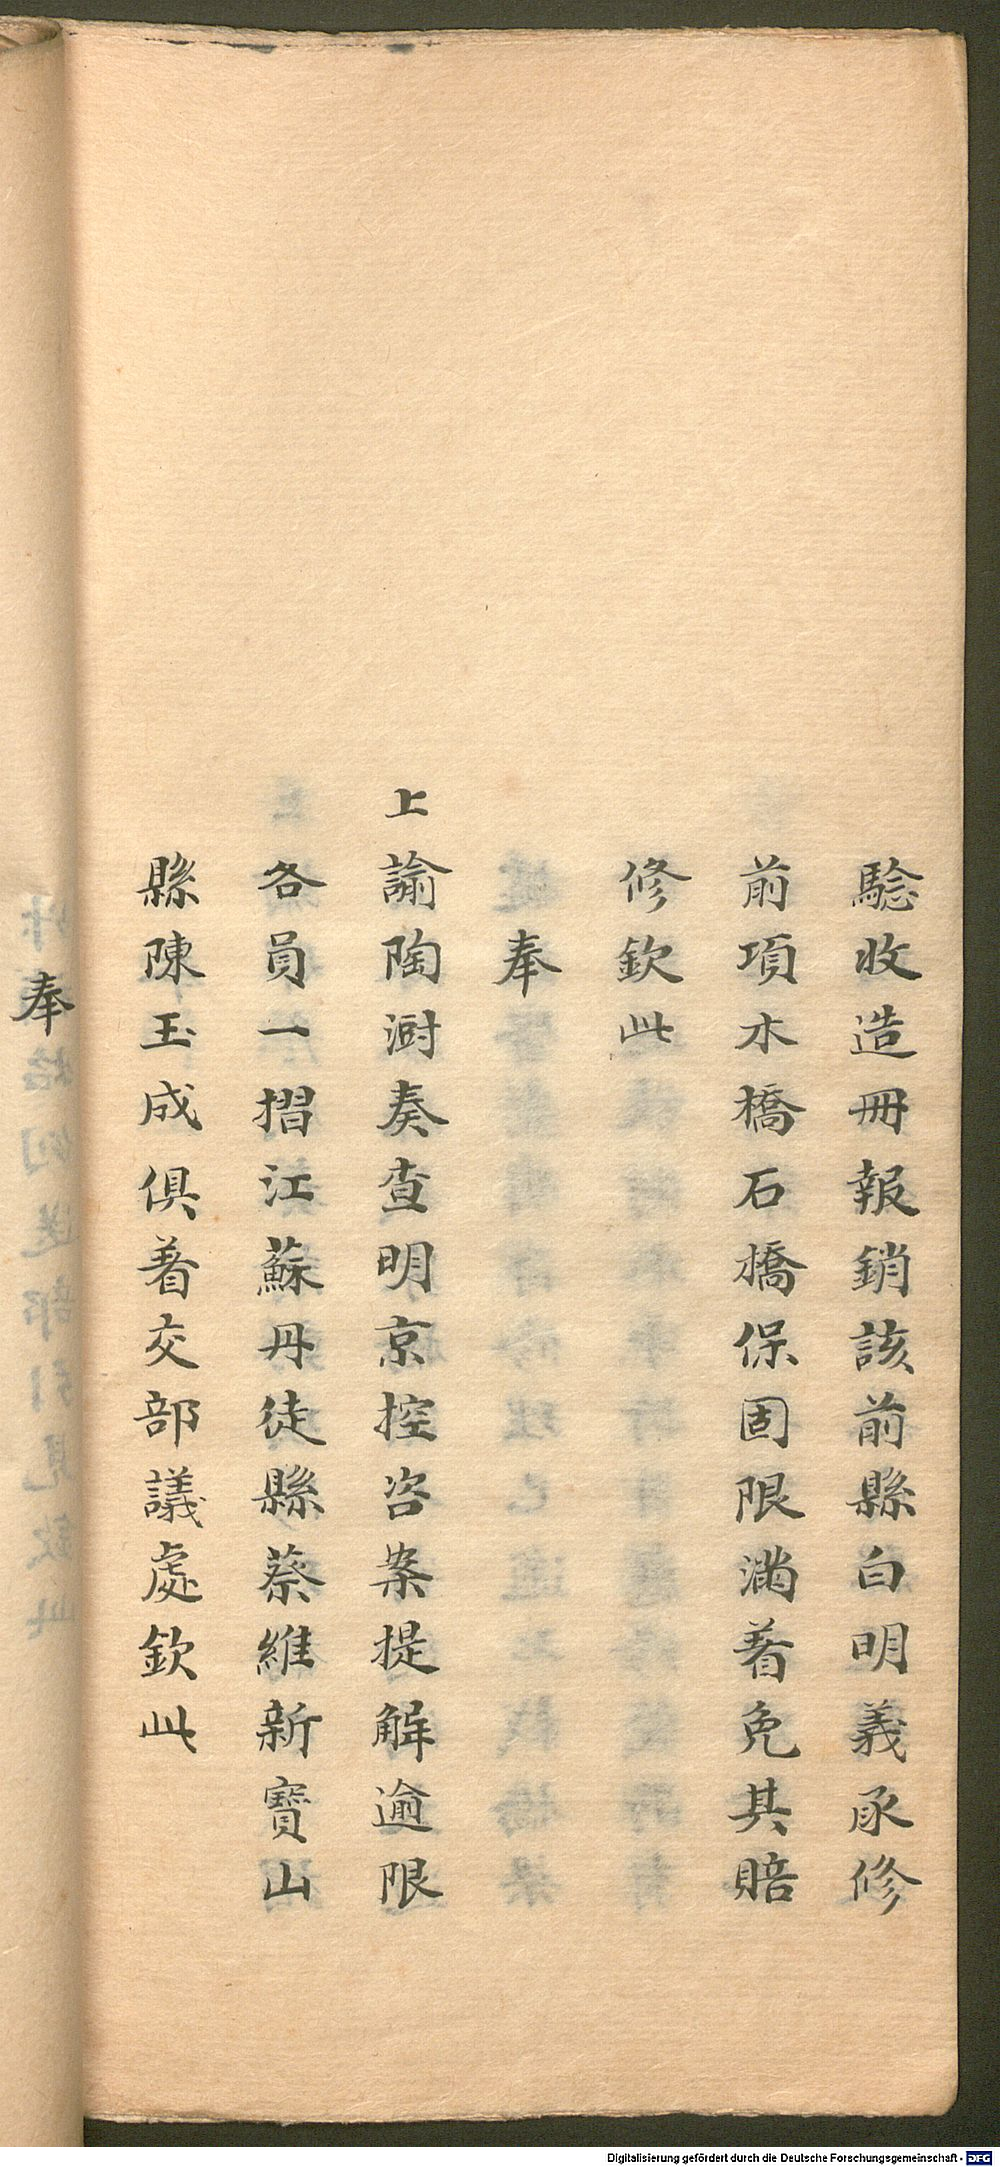 騐收造冊報銷該前縣白明義承修
前項木橋石橋保固限滿着免其賠
修欽此
奉
上諭陶澍奏查明京控咨案提解逾限
各員一摺江蘇丹徒縣蔡維新寶山
縣陳玉成俱着交部議處欽此
奉
Digitalisierung gefördert durch die Deutsche Forschungsgemeinschaft - DFG